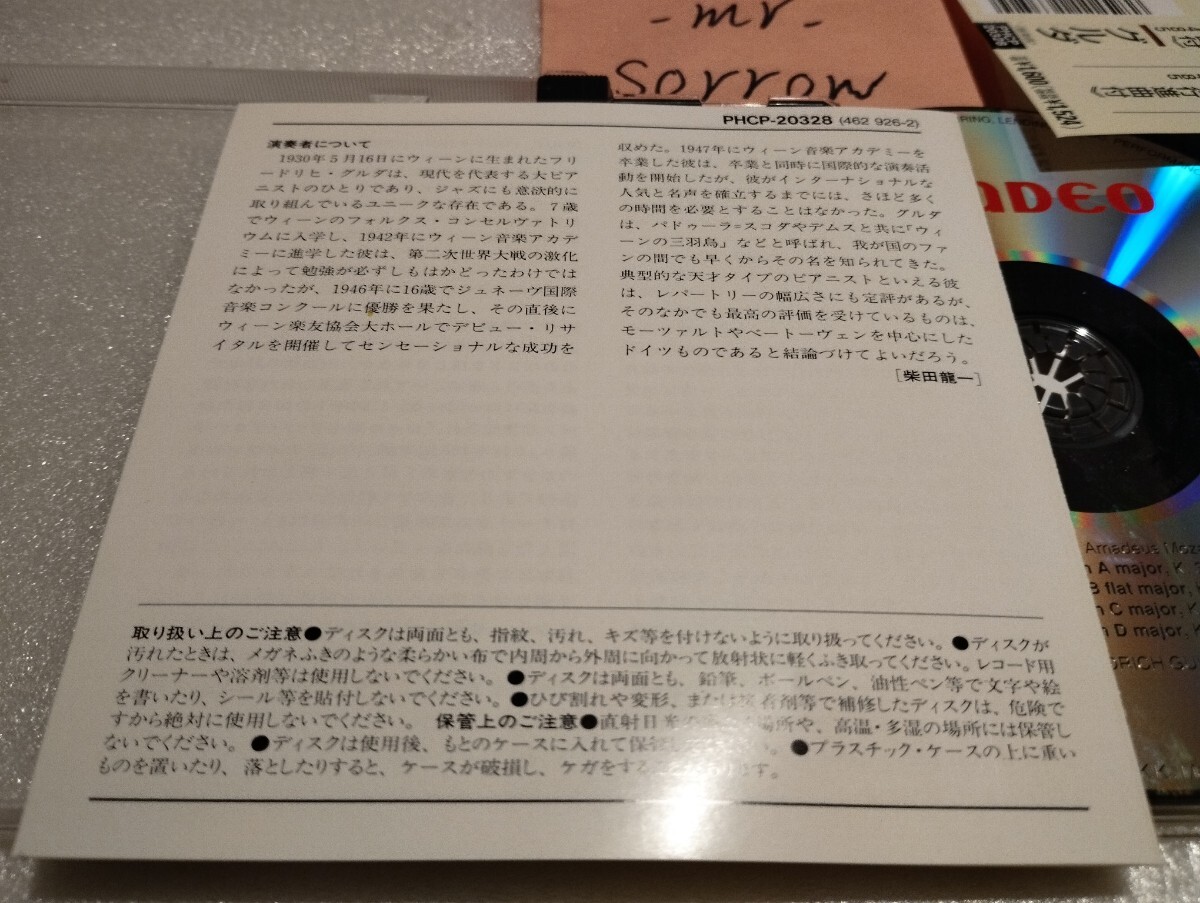 -rm-
morros
グルダ
¥1,524
DEO
PHCP-20328 (462 926-2)
演奏者について
1930年5月16日にウィーンに生まれたフリ
ードリヒ・グルダは、現代を代表する大ピア
ニストのひとりであり、ジャズにも意欲的に
取り組んでいるユニークな存在である。7歳
でウィーンのフォルクス・コンセルヴァトリ
ウムに入学し、1942年にウィーン音楽アカデ
ミーに進学した彼は、第二次世界大戦の激化
によって勉強が必ずしもはかどったわけでは
なかったが、1946年に16歳でジュネーヴ国際
音楽コンクールに優勝を果たし、その直後に
ウィーン楽友協会大ホールでデビュー・リサ
イタルを開催してセンセーショナルな成功を
収めた。1947年にウィーン音楽アカデミーを
卒業した彼は、卒業と同時に国際的な演奏活
動を開始したが、彼がインターナショナルな
人気と名声を確立するまでには、さほど多く
の時間を必要とすることはなかった。グルダ
は、バドゥーラ=スコダやデムスと共に「ウィ
ーンの三羽烏」などと呼ばれ、我が国のファ
ンの間でも早くからその名を知られてきた。
典型的な天才タイプのピアニストといえる彼
は、レパートリーの幅広さにも定評があるが、
そのなかでも最高の評価を受けているものは、
モーツァルトやベートーヴェンを中心にした
ドイツものであると結論づけてよいだろう。
[柴田龍一]
Amadeus
A major, K.
B flat major,
C major, K
D major, K
取り扱い上のご注意●ディスクは両面とも、指紋、汚れ、キズ等を付けないように取り扱ってください。●ディスクが
汚れたときは、メガネふきのような柔らかい布で内周から外周に向かって放射状に軽くふき取ってください。レコード用
クリーナーや溶剤等は使用しないでください。●ディスクは両面とも、鉛筆、ボールペン、油性ペン等で文字や絵
を書いたり、シール等を貼付しないでください。●ひび割れや変形、または接着剤等で補修したディスクは、危険で
すから絶対に使用しないでください。 保管上のご注意●直射日光の 場所や、高温・多湿の場所には保管し
ないでください。●ディスクは使用後、もとのケースに入れて保管し い。●プラスチック・ケースの上に重い
ものを置いたり、落としたりすると、ケースが破損し、ケガをする ます。